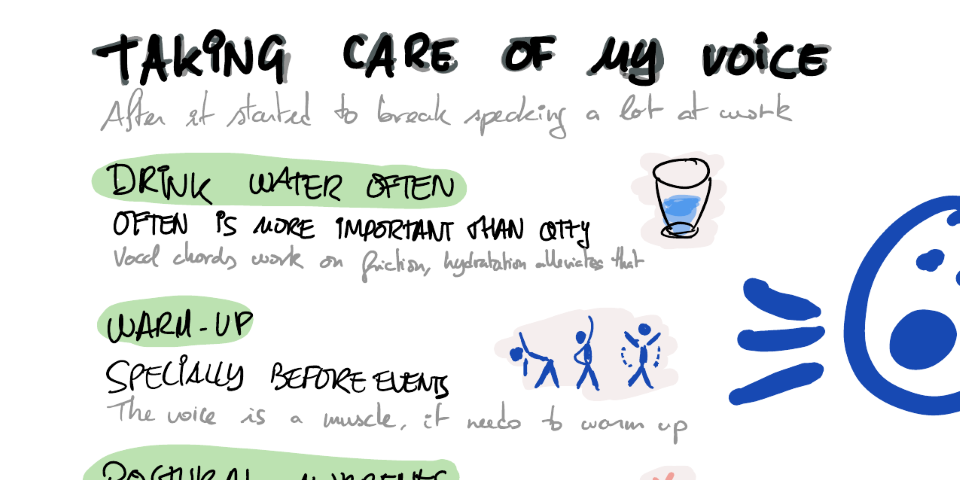 TAKING CARE OF MY VOICE
After it started to break speaking a lot at work
DRINK WATER OFTEN
OFTEN IS MORE IMPORTANT THAN QTTY
Vocal chords work on friction, hydratation alleviates that
WARM-UP
SPECIALLY BEFORE EVENTS
The voice is a muscle, it needs to warm up
POSTURAL